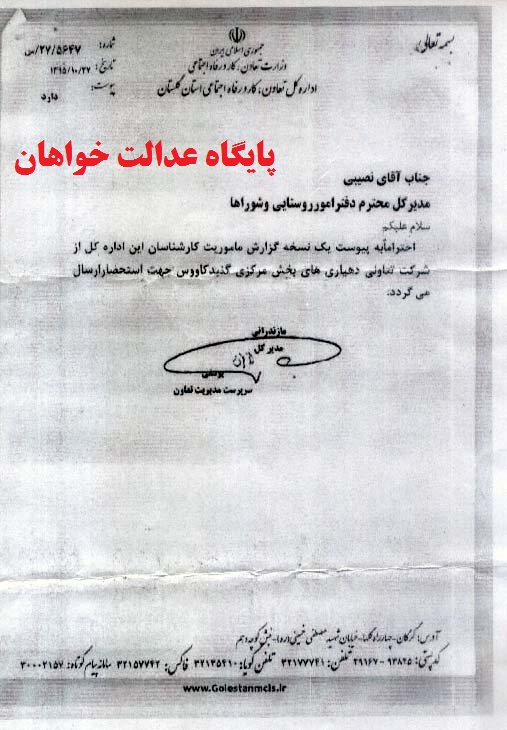 بسمه تعالی
جمهوری اسلامی ایران
وزارت تعاون، کار و رفاه اجتماعی
اداره کل تعاون، کار و رفاه اجتماعی استان گلستان
شماره: ۲۷/۵۶۴۷/س
تاریخ: ۱۳۹۵/۱۰/۲۷
پیوست: دارد
پایگاه عدالت خواهان
جناب آقای نصیبی
مدیرکل محترم دفترامورروستایی وشوراها
سلام علیکم
احتراماًبه پیوست یک نسخه گزارش ماموریت کارشناسان این اداره کل از
شرکت تعاونی دهیاری های بخش مرکزی گنبدکاووس جهت استحضارارسال
می گردد.
مازندرانی
مدیرکل
یوسفی
سرپرست مدیریت تعاون
آدرس: گرگان- چهارراه گلها- خیابان شهید مصطفی خمینی(ره)- نبش کوچه دهم
کدپستی: ۹۳۸۴۵-۴۹۱۶۷ تلفن: ۳۲۱۷۷۷۴۱ تلفن گویا: ۳۲۱۳۵۴۱۰ فاکس: ۳۲۱۵۷۷۴۲ سامانه پیام کوتاه: ۳۰۰۰۲۱۵۷
www.Golestanmcls.ir